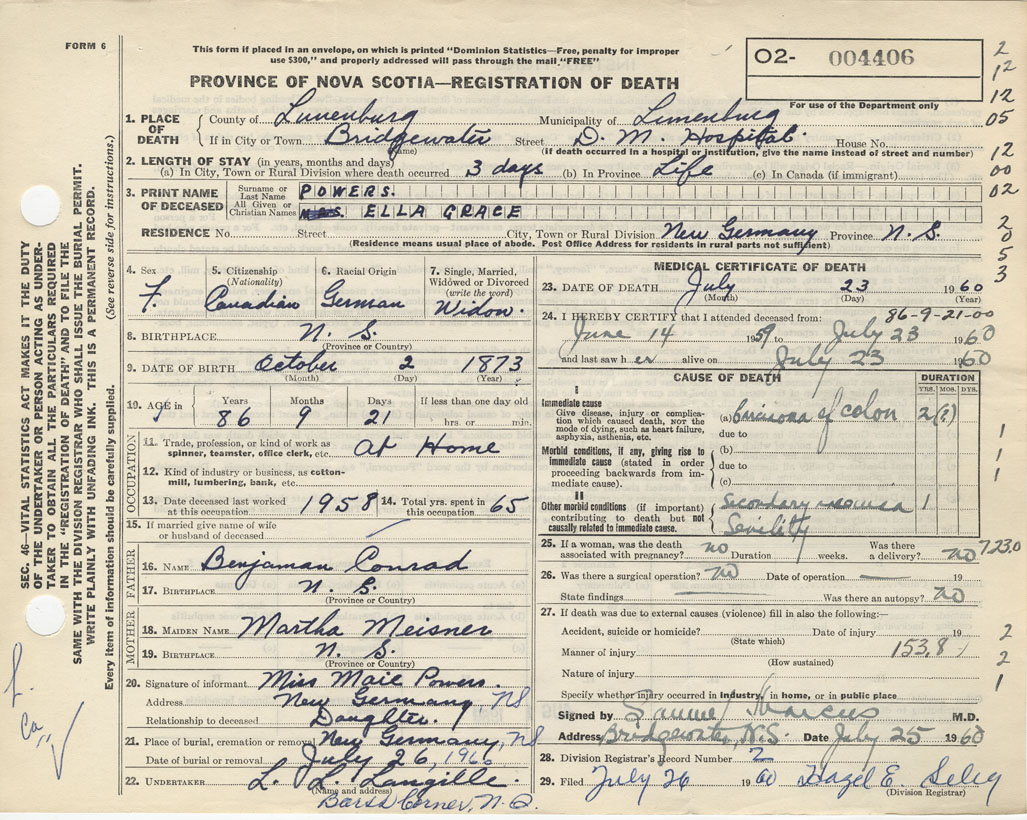 FORM 6
This form if placed in an envelope, on which is printed "Dominion Statistics—Free, penalty for improper
use $300," and properly addressed will pass through the mail "FREE"
PROVINCE OF NOVA SCOTIA—REGISTRATION OF DEATH
O2- 004406
For use of the Department only
2
12
12
05
12
00
02
2
0
5
3
SEC. 46—VITAL STATISTICS ACT MAKES IT THE DUTY
OF THE UNDERTAKER OR PERSON ACTING AS UNDER-
TAKER TO OBTAIN ALL THE PARTICULARS REQUIRED
IN THE "REGISTRATION OF DEATH" AND TO FILE THE
SAME WITH THE DIVISION REGISTRAR WHO SHALL ISSUE THE BURIAL PERMIT.
WRITE PLAINLY WITH UNFADING INK. THIS IS A PERMANENT RECORD.
Every item of information should be carefully supplied. (See reverse side for instructions.)
1. PLACE OF DEATH
County of Lunenburg Municipality of Lunenburg
If in City or Town Bridgewater Street D. M. Hospital. House No.
(Name) (if death occurred in a hospital or institution, give the name instead of street and number)
2. LENGTH OF STAY (in years, months and days)
(a) In City, Town or Rural Division where death occurred 3 days (b) In Province Life (c) In Canada (if immigrant)
3. PRINT NAME OF DECEASED
Surname or Last Name POWERS.
All Given or Christian Names ELLA GRACE
RESIDENCE No. Street City, Town or Rural Division New Germany Province N. S.
(Residence means usual place of abode. Post Office Address for residents in rural parts not sufficient)
4. Sex F.
5. Citizenship (Nationality) Canadian
6. Racial Origin German
7. Single, Married, Widowed or Divorced (write the word) Widow.
8. BIRTHPLACE N. S.
(Province or Country)
9. DATE OF BIRTH October 2 1873
(Month) (Day) (Year)
10. AGE in Years Months Days If less than one day old
86 9 21 hrs. or min.
OCCUPATION
11. Trade, profession, or kind of work as
spinner, teamster, office clerk, etc. At Home
12. Kind of industry or business, as cotton-
mill, lumbering, bank, etc.
13. Date deceased last worked at this occupation 1958 14. Total yrs. spent in this occupation 65
15. If married give name of wife
or husband of deceased
FATHER
16. NAME Benjaman Conrad
17. BIRTHPLACE N. S.
(Province or Country)
MOTHER
18. MAIDEN NAME Martha Meisner
19. BIRTHPLACE N. S.
(Province or Country)
20. Signature of informant Miss Maie Powers.
Address New Germany, NS
Relationship to deceased Daughter.
21. Place of burial, cremation or removal New Germany, NS
Date of burial or removal July 26, 1960
22. UNDERTAKER L. L. Langille.
(Name and address)
Barss Corner, N. S.
MEDICAL CERTIFICATE OF DEATH
23. DATE OF DEATH July 23 1960
(Month) (Day) (Year)
24. I HEREBY CERTIFY that I attended deceased from: 86-9-21-00
June 14 1959 to July 23 1960
and last saw her alive on July 23 1960
CAUSE OF DEATH
DURATION
YRS. MOS. DYS.
I
Immediate cause
Give disease, injury or complica-
tion which caused death, NOT the
mode of dying, such as heart failure,
asphyxia, asthenia, etc.
(a) of colon 2(?)
due to
Morbid conditions, if any, giving rise to
immediate cause (stated in order
proceeding backwards from im-
mediate cause).
(b)
due to
(c)
1
1
1
II
Other morbid conditions (if important)
contributing to death but not
causally related to immediate cause.
Secondary 1
Senility
25. If a woman, was the death
associated with pregnancy? no Duration weeks. Was there a delivery? no
723.0
26. Was there a surgical operation? no Date of operation 19
State findings Was there an autopsy? no
27. If death was due to external causes (violence) fill in also the following:—
Accident, suicide or homicide? Date of injury 19
(State which)
Manner of injury 153.8
(How sustained)
Nature of injury
Specify whether injury occurred in industry, in home, or in public place
2
2
1
Signed by Samuel Marcus M.D.
Address Bridgewater, N.S. Date July 25 1960
28. Division Registrar's Record Number 2
29. Filed July 26 1960 Hazel E. Selig
(Division Registrar)